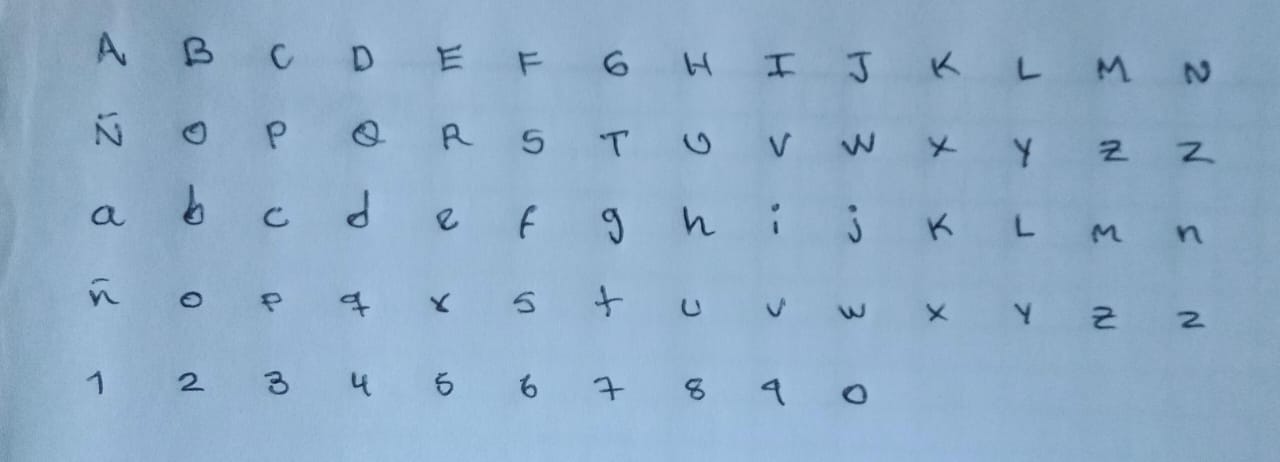 A B C D E F G H I J K L M N
Ñ O P Q R S T U V W X Y Z Z
a b c d e f g h i j K L M n
ñ o p q r s t u v w x y z z
1 2 3 4 5 6 7 8 9 0